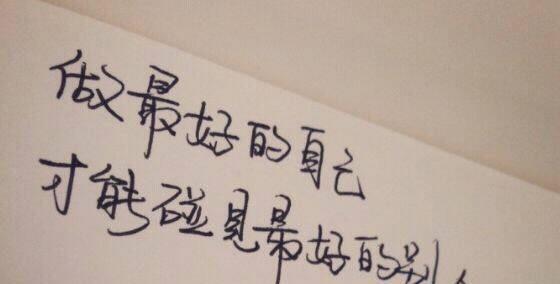 做最好的自己
才能碰见最好的别